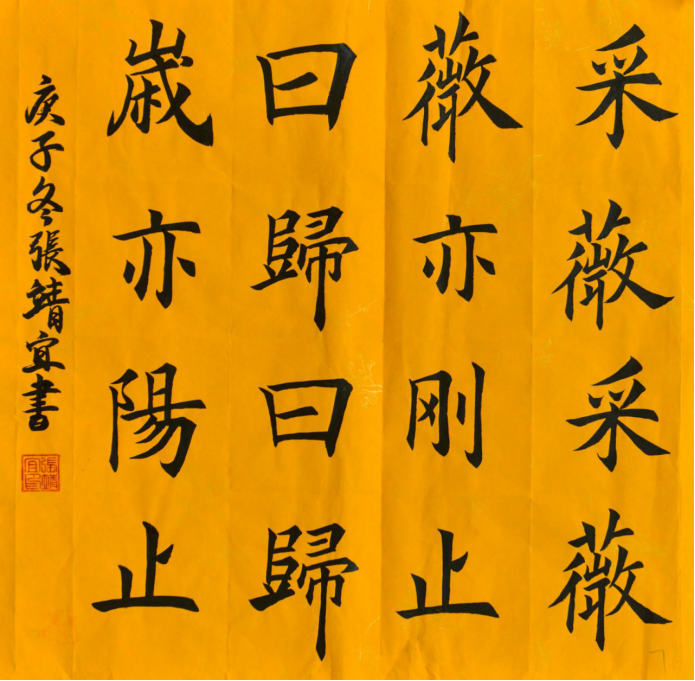 采薇采薇
薇亦刚止
曰歸曰歸
歲亦陽止
庚子冬張靖宜書
張靖宜印